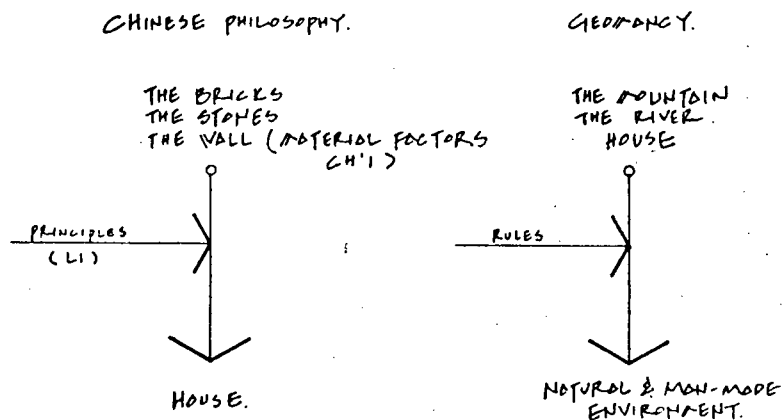 CHINESE PHILOSOPHY.
THE BRICKS
THE STONES
THE WALL (MATERIAL FACTORS
CH'I)
PRINCIPLES
(LI)
HOUSE.
GEOMANCY.
THE MOUNTAIN
THE RIVER.
HOUSE
RULES
NATURAL & MAN-MADE
ENVIRONMENT.